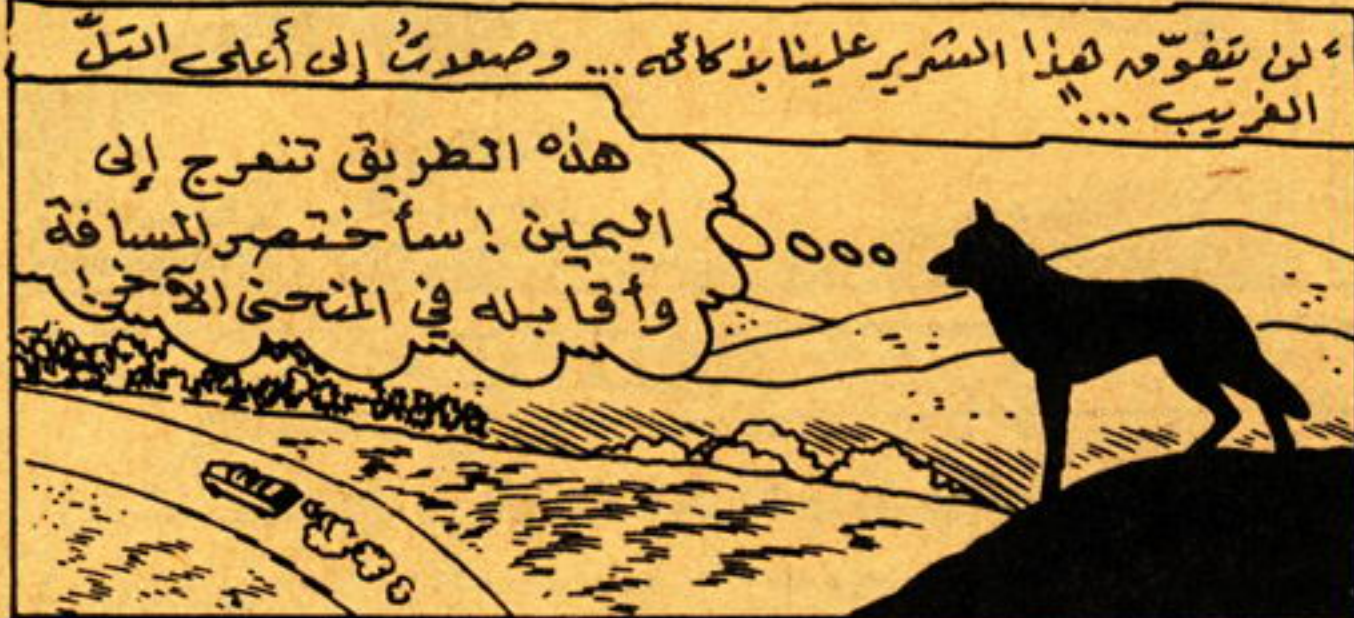 "لن يتفوّق هذا الشرير علينا بذكائه... وصعدتُ إلى أعلى التلّ
القريب..."
هذه الطريق تنعرج إلى
اليمين! سأختصر المسافة
وأقابله في المنحنى الآخر!